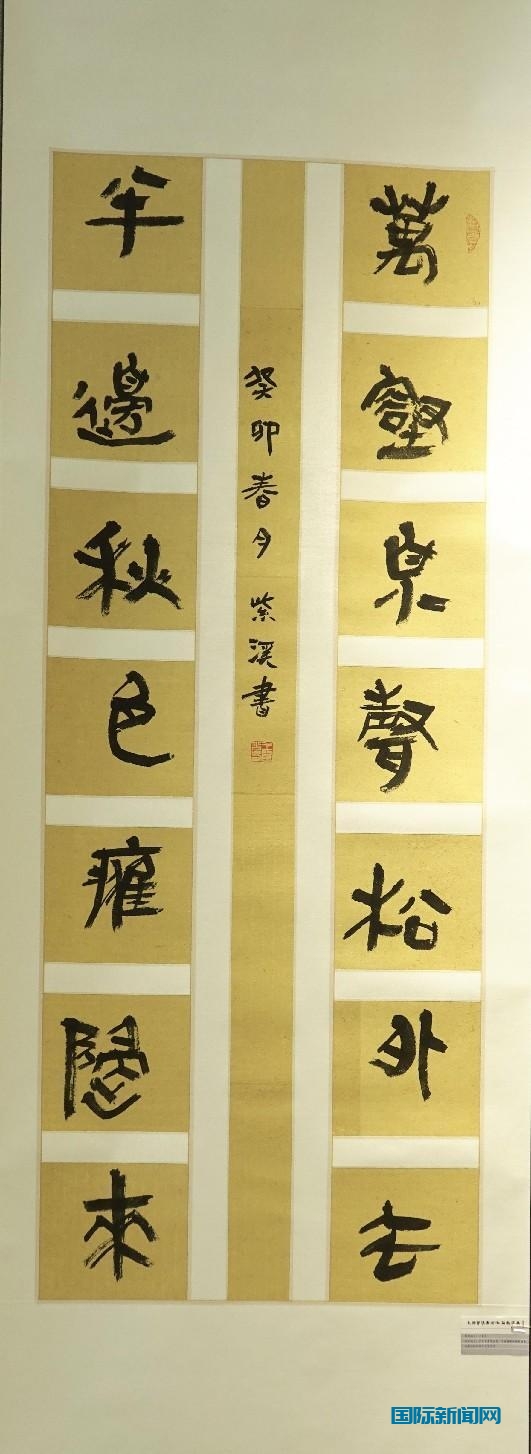 萬壑泉聲松外去
半邊秋色雁隱來
癸卯春月 紫溪書
国际新闻网